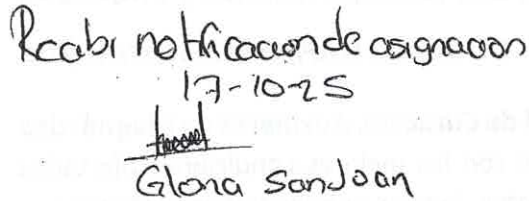 Recabi notificacion de asignacion
17-10-25
Gloria SanJuan